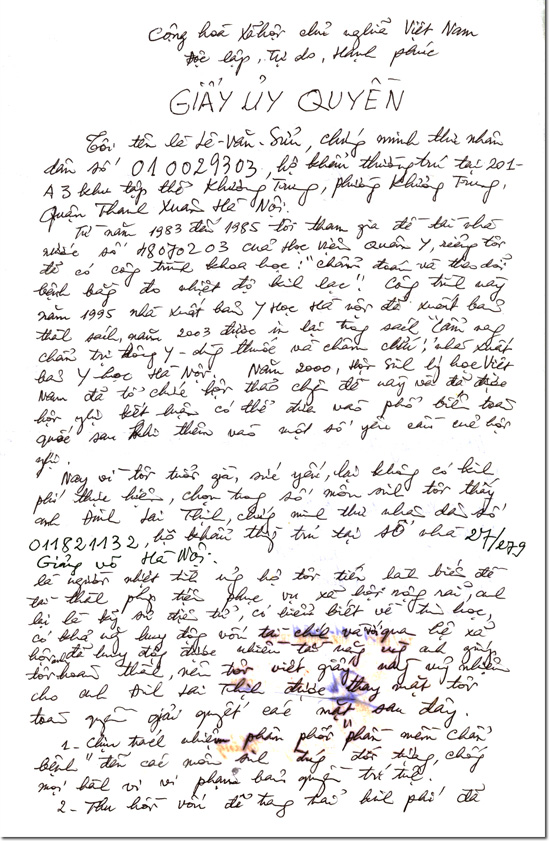 Cộng hoà xã hội chủ nghĩa Việt Nam
Độc lập, Tự do, Hạnh phúc
GIẤY ỦY QUYỀN
Tôi tên là Lê-Văn-Sửu, chứng minh thư nhân
dân số 010029303, hộ khẩu thường trú tại 201-
A3 khu tập thể Khương Trung, phường Khương Trung,
Quận Thanh Xuân Hà Nội.
Từ năm 1983 đến 1985 tôi tham gia đề tài nhà
nước số 48070203 của Học viện Quân Y, riêng tôi
đã có công trình khoa học: "chẩn đoán và theo dõi
bệnh bằng đo nhiệt độ kinh lạc". Công trình này
năm 1995 nhà xuất bản Y Học Hà Nội đã xuất bản
thành sách, năm 2003 được in lại trong sách "Cẩm nang
chẩn trị đông y - dùng thuốc và châm cứu", nhà xuất
bản Y học Hà Nội. Năm 2000, Hội Sinh lý học Việt
Nam đã tổ chức hội thảo chuyên đề này và đã được
hội nghị kết luận có thể đưa vào phổ biến toàn
quốc sau khi thêm vào một số yêu cầu của hội
nghị.
Nay vì tôi tuổi già, sức yếu, lại không có kinh
phí thực hiện, chọn trong số môn sinh tôi thấy
anh Đinh Lai Thịnh, chứng minh thư nhân dân số
011821132, hộ khẩu thường trú tại số nhà 27/279
Giảng Võ Hà Nội.
là người nhiệt tình ủng hộ tôi tiến hành biến đề
tài thành phục vụ xã hội rộng rãi, anh
lại là kỹ sư điện tử, có hiểu biết về tin học,
có khả năng huy động vốn tài chính và qua hệ xã
hội để huy động được nhiều tài năng cùng anh giúp
tôi hoàn thành, nên tôi viết giấy này uỷ nhiệm
cho anh Đinh Lai Thịnh được thay mặt tôi
toàn quyền giải quyết các mặt sau đây
1- Chịu trách nhiệm phân phối "phần mềm chẩn
bệnh" đến các môn sinh đúng đối tượng, chống
mọi hành vi vi phạm bản quyền trí tuệ.
2- Thu hồi vốn để trang trải kinh phí đã